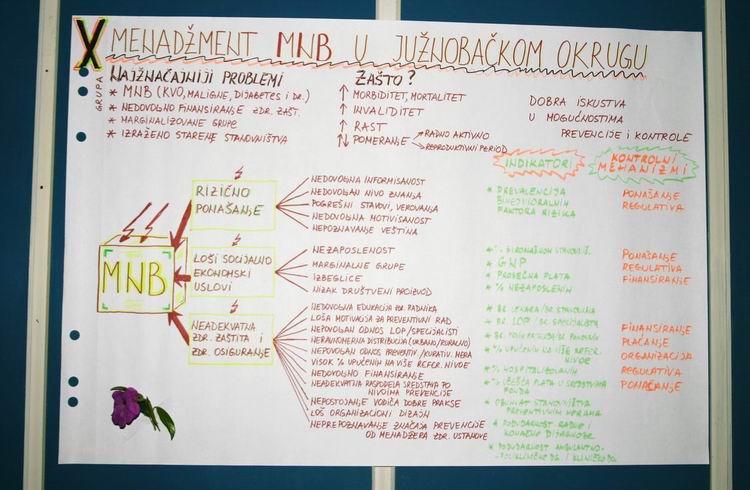 X MENADŽMENT MNB U JUŽNOBAČKOM OKRUGU
GRUPA
NAJZNAČAJNIJI PROBLEMI
* MNB (KVO, MALIGNE, DIJABETES I DR.)
* NEDOVOLJNO FINANSIRANJE ZDR. ZAŠT.
* MARGINALIZOVANE GRUPE
* IZRAŽENO STARENJE STANOVNIŠTVA
ZAŠTO?
↑ MORBIDITET, MORTALITET
↑ INVALIDITET
↑ RAST
↑↓ POMERANJE
RADNO AKTIVNO
REPRODUKTIVNI PERIOD
DOBRA ISKUSTVA
U MOGUĆNOSTIMA
PREVENCIJE I KONTROLE
INDIKATORI
KONTROLNI
MEHANIZMI
MNB
RIZIČNO
PONAŠANJE
NEDOVOLJNA INFORMISANOST
NEDOVOLJAN NIVO ZNANJA
POGREŠNI STAVOVI, VEROVANJA
NEDOVOLJNA MOTIVISANOST
NEPOZNAVANJE VEŠTINA
* PREVALENCIJA
BIHEJVIORALNIH
FAKTORA RIZIKA
PONAŠANJE
REGULATIVA
LOŠI SOCIJALNO
EKONOMSKI
USLOVI
NEZAPOSLENOST
MARGINALNE GRUPE
IZBEGLICE
NIZAK DRUŠTVENI PROIZVOD
* % SIROMAŠNOG STANOVNIŠ.
* GNP
* PROSEČNA PLATA
* % NEZAPOSLENIH
PONAŠANJE
REGULATIVA
FINANSIRANJE
NEADEKVATNA
ZDR. ZAŠTITA I
ZDR. OSIGURANJE
NEDOVOLJNA EDUKACIJA ZDR. RADNIKA
LOŠA MOTIVACIJA ZA PREVENTIVNI RAD
NEPOVOLJAN ODNOS LOP/SPECIJALISTI
NERAVNOMERNA DISTRIBUCIJA (URBANO/RURALNO)
NEPOVOLJAN ODNOS PREVENTIV./KURATIV. MERA
VISOK % UPUĆENIH NA VIŠE REFER. NIVOE
NEDOVOLJNO FINANSIRANJE
NEADEKVATNA RASPODELA SREDSTAVA PO
NIVOIMA PREVENCIJE
NEPOSTOJANJE VODIČA DOBRE PRAKSE
LOŠ ORGANIZACIONI DIZAJN
NEPREPOZNAVANJE ZNAČAJA PREVENCIJE
OD MENADŽERA ZDR. USTANOVE
* BR. LEKARA / BR. STANOVNIKA
* BR. LOP / BR. SPECIJALISTA
* % UPUĆENIH NA VIŠE REFER.
NIVOE
* % HOSPITALIZOVANIH
* % UČEŠĆA PLATA U SREDSTVIMA
FONDA
* OBUHVAT STANOVNIŠTVA
PREVENTIVNIM MERAMA
* PODUDARNOST RADNE I
KONAČNE DIJAGNOZE
* PODUDARNOST AMBULANTNO-
POLIKLINIČKE DG. I KLINIČKE DG.
FINANSIRANJE
PLAĆANJE
ORGANIZACIJA
REGULATIVA
PONAŠANJE